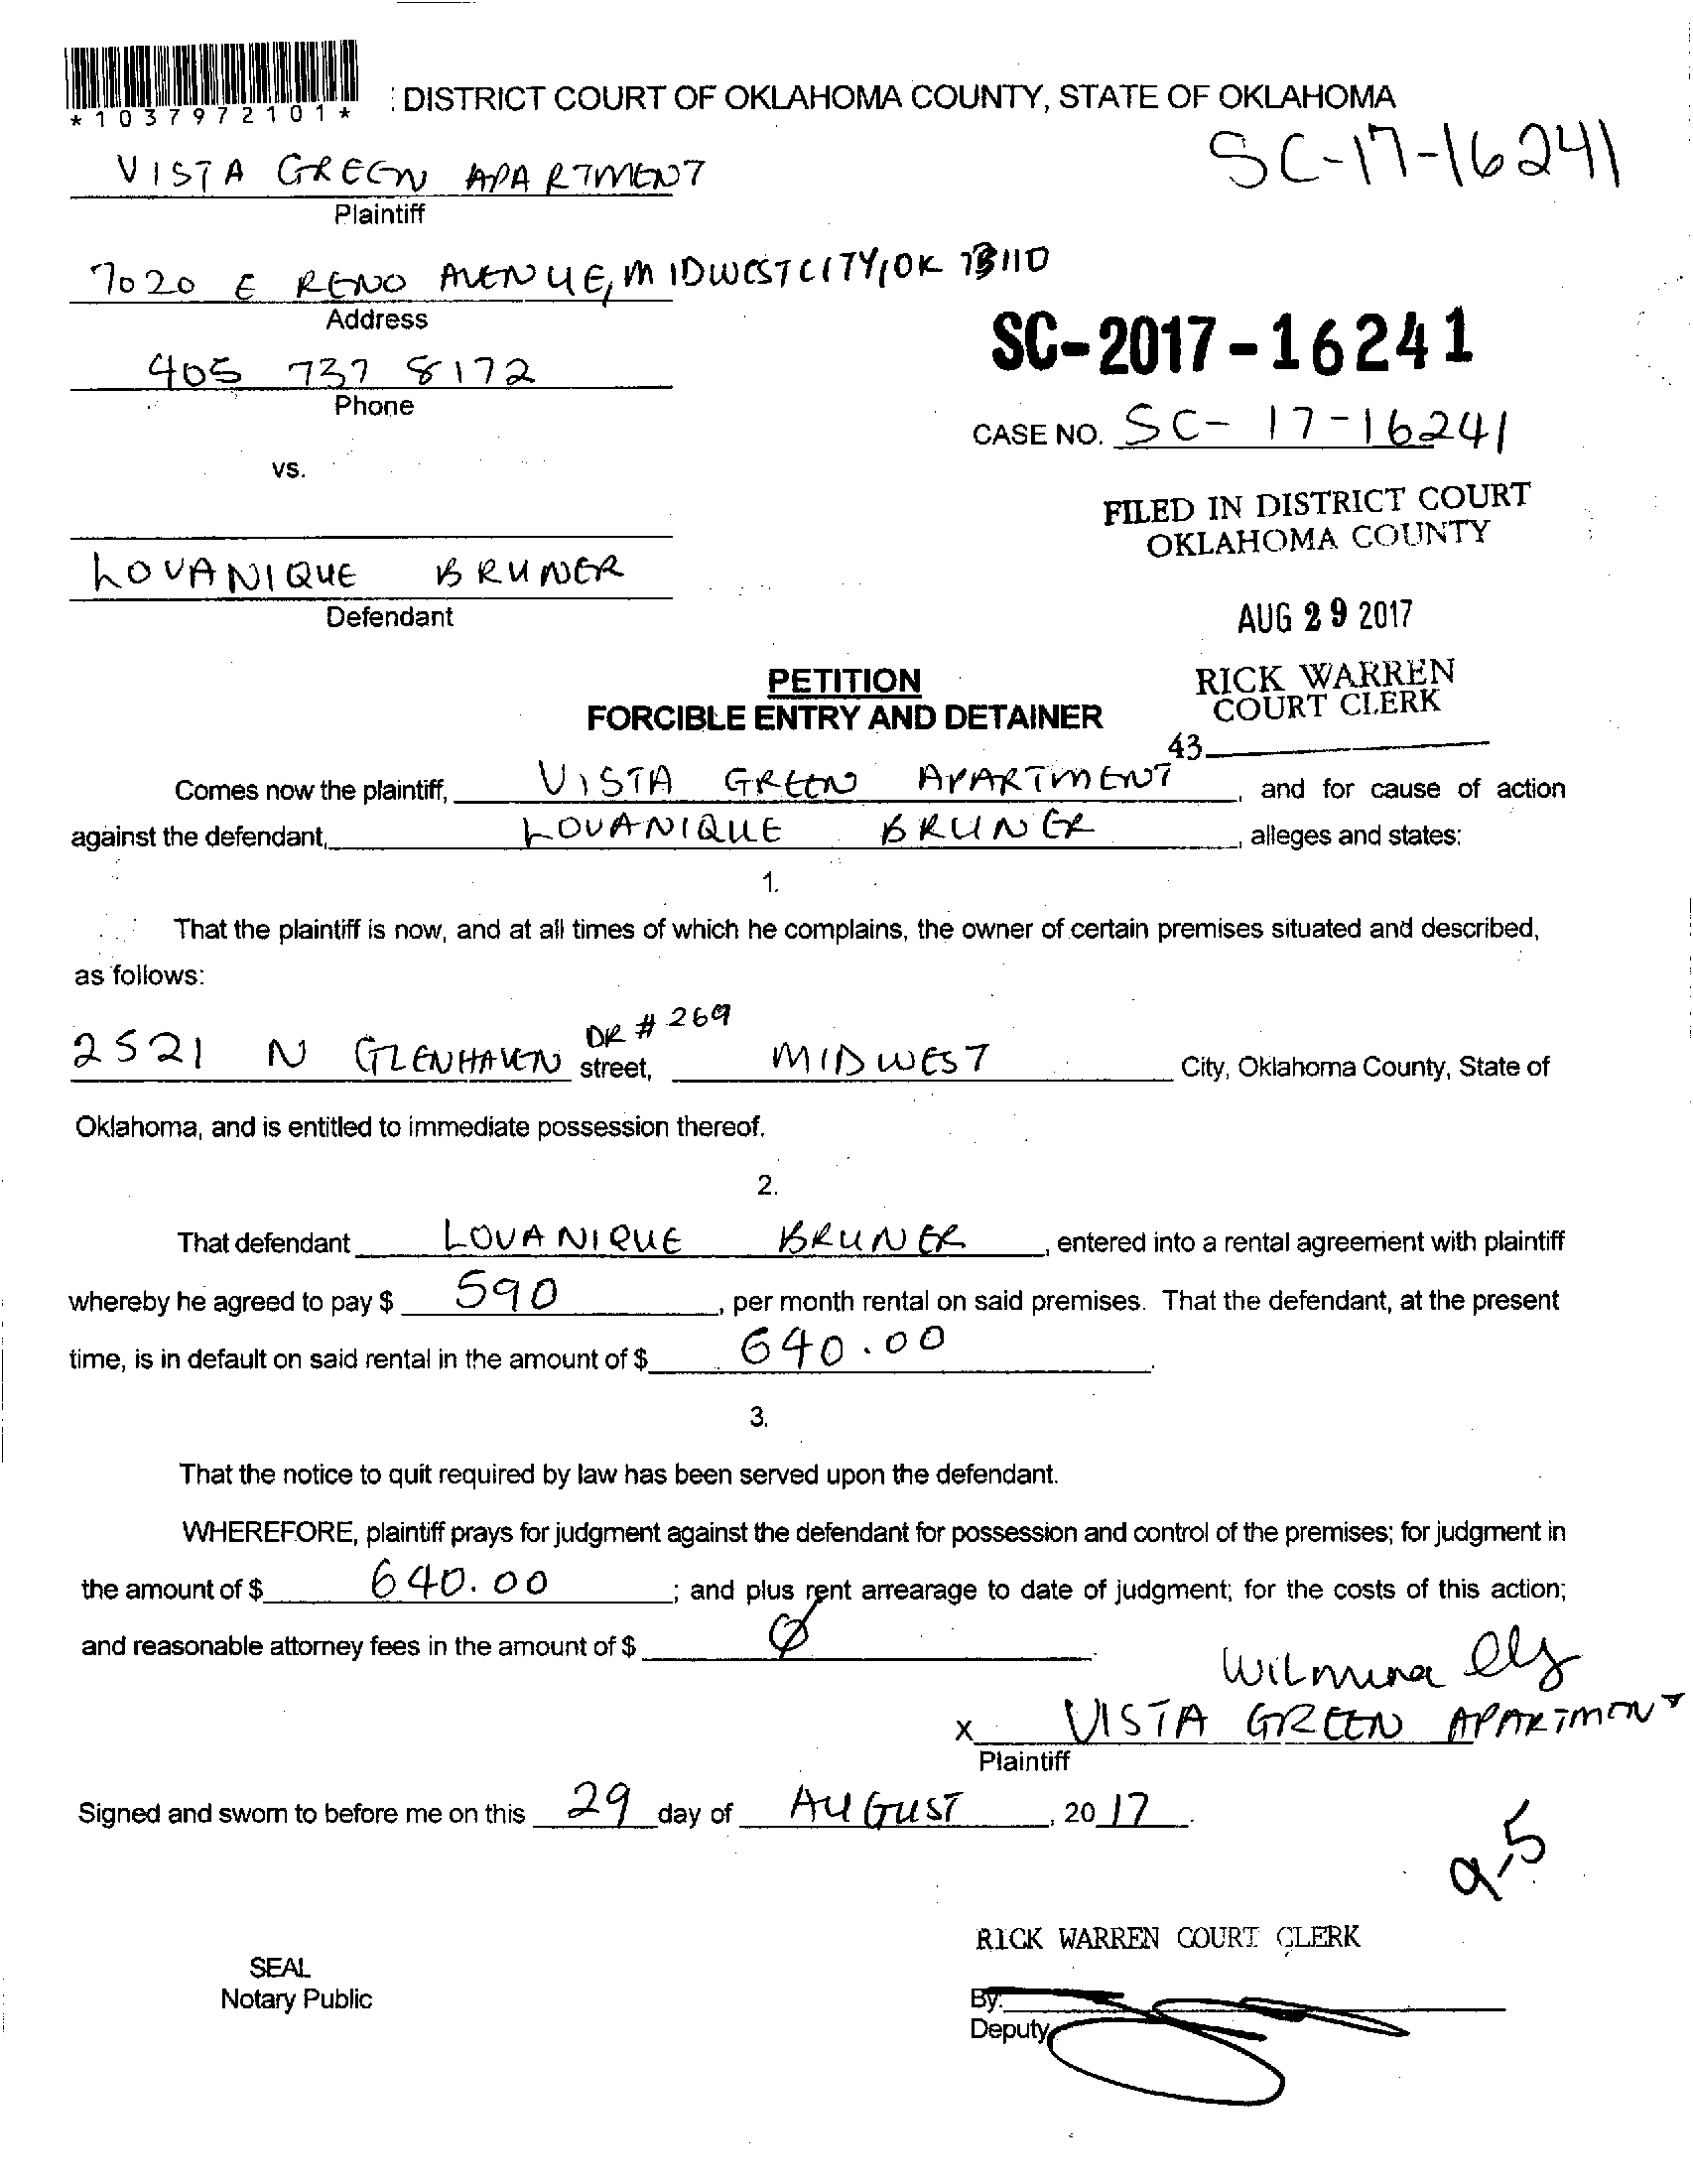 *1037972101*
: DISTRICT COURT OF OKLAHOMA COUNTY, STATE OF OKLAHOMA
SC-17-16241
VISTA GREEN APARTMENT
Plaintiff
7020 E RENO AVENUE, MIDWEST CITY, OK 73110
Address
SC-2017-16241
405 737 8172
Phone
CASE NO. SC-17-16241
vs.
FILED IN DISTRICT COURT
OKLAHOMA COUNTY
LOVANIQUE BRUNER
Defendant
AUG 29 2017
PETITION
RICK WARREN
COURT CLERK
FORCIBLE ENTRY AND DETAINER
43
Comes now the plaintiff, VISTA GREEN APARTMENT, and for cause of action
against the defendant, LOVANIQUE BRUNER, alleges and states:
1.
That the plaintiff is now, and at all times of which he complains, the owner of certain premises situated and described,
as follows:
2521 N GLENHAVEN DR # 269 street, MIDWEST City, Oklahoma County, State of
Oklahoma, and is entitled to immediate possession thereof.
2.
That defendant LOVANIQUE BRUNER, entered into a rental agreement with plaintiff
whereby he agreed to pay $ 590, per month rental on said premises. That the defendant, at the present
time, is in default on said rental in the amount of $ 640.00.
3.
That the notice to quit required by law has been served upon the defendant.
WHEREFORE, plaintiff prays for judgment against the defendant for possession and control of the premises; for judgment in
the amount of $ 640.00; and plus rent arrearage to date of judgment; for the costs of this action;
and reasonable attorney fees in the amount of $ Ø.
Wilmina Ely
X VISTA GREEN APARTMENT
Plaintiff
Signed and sworn to before me on this 29 day of AUGUST, 20 17.
9-5
RICK WARREN COURT CLERK
SEAL
Notary Public
By:
Deputy